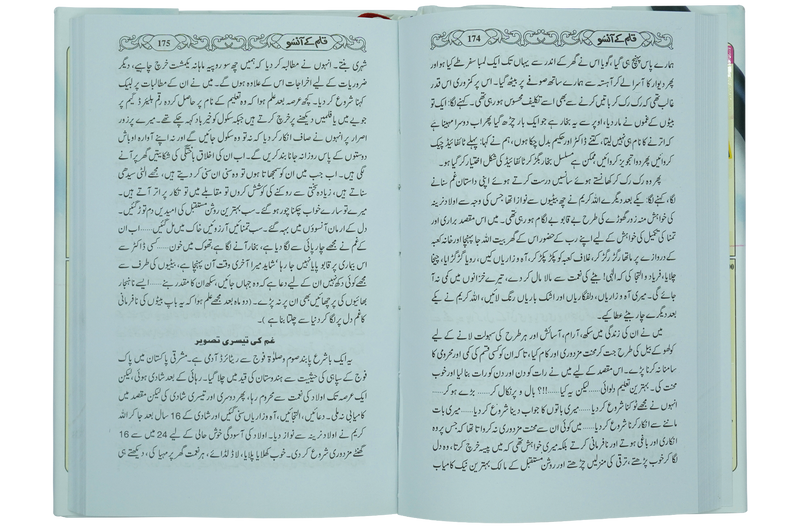 174 قلم کے آنسو
ہمارے پاس پہنچ ہی گیا، گویا اس نے گھر کے اندر سے یہاں تک لمبا سفر طے کیا ہو اور
پھر دیوار کا آسرا لے کر آہستہ سے ہمارے ساتھ صوفے پر بیٹھ گیا۔ اس پر کمزوری اس قدر
غالب تھی کہ رک رک کر باتیں کرنے سے بھی اسے تکلیف محسوس ہو رہی تھی۔ کہنے لگا: ایک تو
بیٹوں کے غموں نے مار دیا، اوپر سے یہ بخار ہے جو ایک بار چڑھ گیا پھر اب دوسرا مہینا ہے
کہ اترنے کا نام ہی نہیں لیتا، کتنے ڈاکٹر اور حکیم بدل چکا ہوں، ہم نے کہا: پہلے ٹائیفائیڈ چیک
کروائیں پھر دوا تجویز کروائیں، ممکن ہے مسلسل بخار بگڑ کر ٹائیفائیڈ کی شکل اختیار کر گیا ہو۔
پھر وہ رک رک کر کھانستے ہوئے سانسیں درست کرتے ہوئے اپنی داستانِ غم سنانے
لگا، کہنے لگا: یکے بعد دیگرے اللہ کریم نے چھ بیٹیوں سے نوازا تھا جس کی وجہ سے اولاد نرینہ
کی خواہش منہ زور گھوڑے کی طرح بے قابو بے لگام ہو رہی تھی۔ میں اس مقصد براری اور
تمنا کی تکمیل کی خواہش کے لیے اپنے رب کے حضور اس کے گھر بیت اللہ جا پہنچا اور خانہ کعبہ
کے دروازے پر ماتھا رگڑ رگڑ کر، غلاف کعبہ کو پکڑ پکڑ کر، آہ و زاریاں کیں، رویا گڑگڑایا، چیخا
چلایا، فریاد و التجا کی کہ الٰہی! بیٹے کی نعمت سے مالا مال کر دے، تیرے خزانوں میں کمی نہ آ
جائے گی۔ میری آہ و زاریاں، دلفگاریاں اور اشک باریاں رنگ لائیں، اللہ کریم نے یکے
بعد دیگرے چار بیٹے عطا کیے۔
میں نے ان کی زندگی میں سکھ، آرام، آسائش اور ہر طرح کی سہولت لانے کے لیے
کولھو کے بیل کی طرح جت کر محنت مزدوری اور کام کیا، تاکہ ان کو کسی قسم کی کمی اور محرومی کا
سامنا نہ کرنا پڑے۔ اس مقصد کے لیے میں نے رات کو دن اور دن کو رات بنا لیا اور خوب
محنت کی۔ بہترین تعلیم دلوائی...... لیکن یہ کیا......!!!؟ پال و پر نکال کر...... بڑے ہو کر......
انہوں نے مجھے ٹوکنا شروع کر دیا...... میری باتوں کا جواب دینا شروع کر دیا...... میری بات
ماننے سے انکار کرنا شروع کر دیا...... میں کوئی ان سے سخت مزدوری نہ کرواتا تھا کہ جس پر وہ
انکاری اور باغی ہوتے اور نافرمانی کرتے بلکہ میری خواہش تھی کہ میں پیسہ خرچ کرتا، وہ دل
لگا کر خوب پڑھتے، ترقی کی منزلیں چڑھتے اور روشن مستقبل کے مالک بہترین نیک کامیاب
175 قلم کے آنسو
شہری بنتے۔ انہوں نے مطالبہ کر دیا کہ ہمیں چھ سو روپیہ ماہانہ یکمشت خرچ چاہیے، دیگر
ضروریات کے لیے اخراجات اس کے علاوہ ہوں گے۔ میں نے ان کے مطالبات پر لبیک
کہنا شروع کر دیا۔ کچھ عرصہ بعد علم ہوا کہ وہ تعلیم کے نام پر حاصل کردہ رقم بلیئرڈ گیم پر
جوئے میں یا فلمیں دیکھنے پر خرچ کرتے ہیں جبکہ سکول کو خیر باد کہہ چکے تھے۔ میرے پر زور
اصرار پر انہوں نے صاف انکار کر دیا کہ نہ تو وہ سکول جائیں گے اور نہ اپنے آوارہ اوباش
دوستوں کے پاس روزانہ جانا بند کریں گے۔ اب ان کی اخلاق باختگی کی شکایتیں گھر پر آنے
لگی ہیں۔ اب جب میں ان کو سمجھاتا ہوں تو وہ سنی ان سنی کر دیتے ہیں، مجھے الٹی سیدھی
سناتے ہیں، زیادہ سختی سے روکنے کی کوشش کروں تو مقابلے میں تو تکار پر اتر آتے ہیں۔
میرے تو سارے خواب چکنا چور ہو گئے۔ سب بہترین روشن مستقبل کی امیدیں دم توڑ گئیں۔
دل کے ارمان آنسوؤں میں بہہ گئے۔ سب تمنائیں آرزوئیں خاک میں مل گئیں...... اب ان
کے غم نے مجھے چارپائی سے لگا دیا ہے، بخار آنے لگا ہے، تھوک میں خون...... کسی ڈاکٹر سے
اس بیماری پر قابو پایا نہیں جا رہا، شاید میرا آخری وقت آن پہنچا ہے، بیٹیوں کی طرف سے
مجھے کوئی دکھ نہیں ان کے لیے دعا ہے کہ وہ جہاں جائیں، سکھ ان کا مقدر بنے...... ایسے ناہنجار
بھائیوں کی پرچھائیں بھی ان پر نہ پڑے۔ (دو ماہ بعد مجھے علم ہوا کہ یہ باپ بیٹوں کی نافرمانی
کا غم دل پر لگا کر دنیا سے چلتا بنا ہے)۔
غم کی تیسری تصویر
یہ ایک باشرع پابند صوم و صلوٰۃ فوج سے ریٹائرڈ آدمی ہے۔ مشرقی پاکستان میں پاک
فوج کے سپاہی کی حیثیت سے ہندوستان کی قید میں چلا گیا۔ رہائی کے بعد شادی ہوئی، لیکن
ایک عرصہ تک اولاد کی نعمت سے محروم رہا، پھر دوسری اور تیسری شادی کی لیکن مقصد میں
کامیابی نہ ملی۔ دعائیں، التجائیں، آہ و زاریاں سنی گئیں اور شادی کے 16 سال بعد جا کر اللہ
کریم نے اولاد نرینہ سے نواز دیا۔ اولاد کی آسودگی خوش حالی کے لیے 24 میں سے 16
گھنٹے مزدوری شروع کر دی۔ خوب کھلایا پلایا، لاڈ لڈائے، ہر نعمت گھر پر مہیا کی، دیکھتے ہی